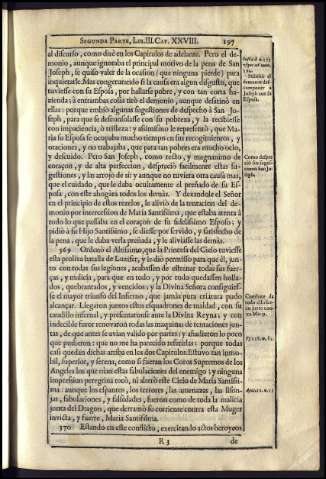 SEGUNDA PARTE, LIB.III. CAP. XXVIII. 197
al discurso, como diré en los Capitulos de adelante. Pero el de-
monio, aunque ignoraba el principal motivo de la pena de San
Joseph, se quiso valer de la ocasion (que ninguna pierde) para
inquietarle. Mas congeturando si la causa era algun disgusto, que
tuviesse con su Esposa, por hallarse pobre, y con tan corta ha-
zienda; à entrambas cosas tirò el demonio, aunque desatinò en
ellas: porque embiò algunas sugestiones de despecho à San Jo-
seph, para que se desconsolasse con su pobreza, y la recibiesse
con impaciencia, ò tristeza: y assimismo le representò, que Ma-
ria su Esposa se ocupaba mucho tiempo en sus recogimientos, y
oraciones, y no trabajaba, que para tan pobres era mucho ocio,
y descuido. Pero San Joseph, como recto, y magnanimo de
corazon, y de alta perfeccion, despreciò facilmente estas su-
gestiones, y las arrojò de sì: y aunque no tuviera otra causa mas,
que el cuidado, que le daba ocultamente el preñado de su Es-
posa, con este ahogàra todos los demàs. Y dexandole el Señor
en el principio de estos rezelos, le aliviò de la tentacion del de-
monio por intercession de Maria Santissima, que estaba atenta à
todo lo que passaba en el corazon de su fidelissimo Esposo, y
pidiò à su Hijo Santissimo, se diesse por servido, y satisfecho de
la pena, que le daba verla preñada, y le aliviasse las demàs.
369 Ordenò el Altissimo, que la Princesa del Cielo tuviesse
esta prolixa batalla de Luzifer, y le diò permisso para que èl, jun-
to con todas sus legiones, acabassen de estrenar todas sus fuer-
zas, y malicia, para que en todo, y por todo quedassen holla-
dos, quebrantados, y vencidos; y la Divina Señora consiguies-
se el mayor triunfo del Infierno, que jamàs pura criatura pudo
alcanzar. Llegaron juntos estos esquadrones de maldad, con su
caudillo infernal, y presentaronse ante la Divina Reyna; y con
indecible furor renovaron todas las maquinas de tentaciones jun-
tas, de que antes se avian valido por partes; y añadieron lo poco
que pudieron: que no me ha parecido referirlas: porque todas
casi quedan dichas arriba en los dos Capitulos. Estuvo tan inmo-
bil, superior, y serena, como si fueran los Coros Supremos de los
Angeles los que oìan estas fabulaciones del enemigo; y ninguna
impression peregrina tocò, ni alterò este Cielo de Maria Santissi-
ma: aunque los espantos, los terrores, las amenazas, las lison-
jas, fabulaciones, y falsedades, fueron como de toda la malicia
junta del Dragon, que derramò su corriente contra esta Muger
invicta, y fuerte, Maria Santissima.
370 Estando en este conflicto, exercitando actos heroycos
R 3 de